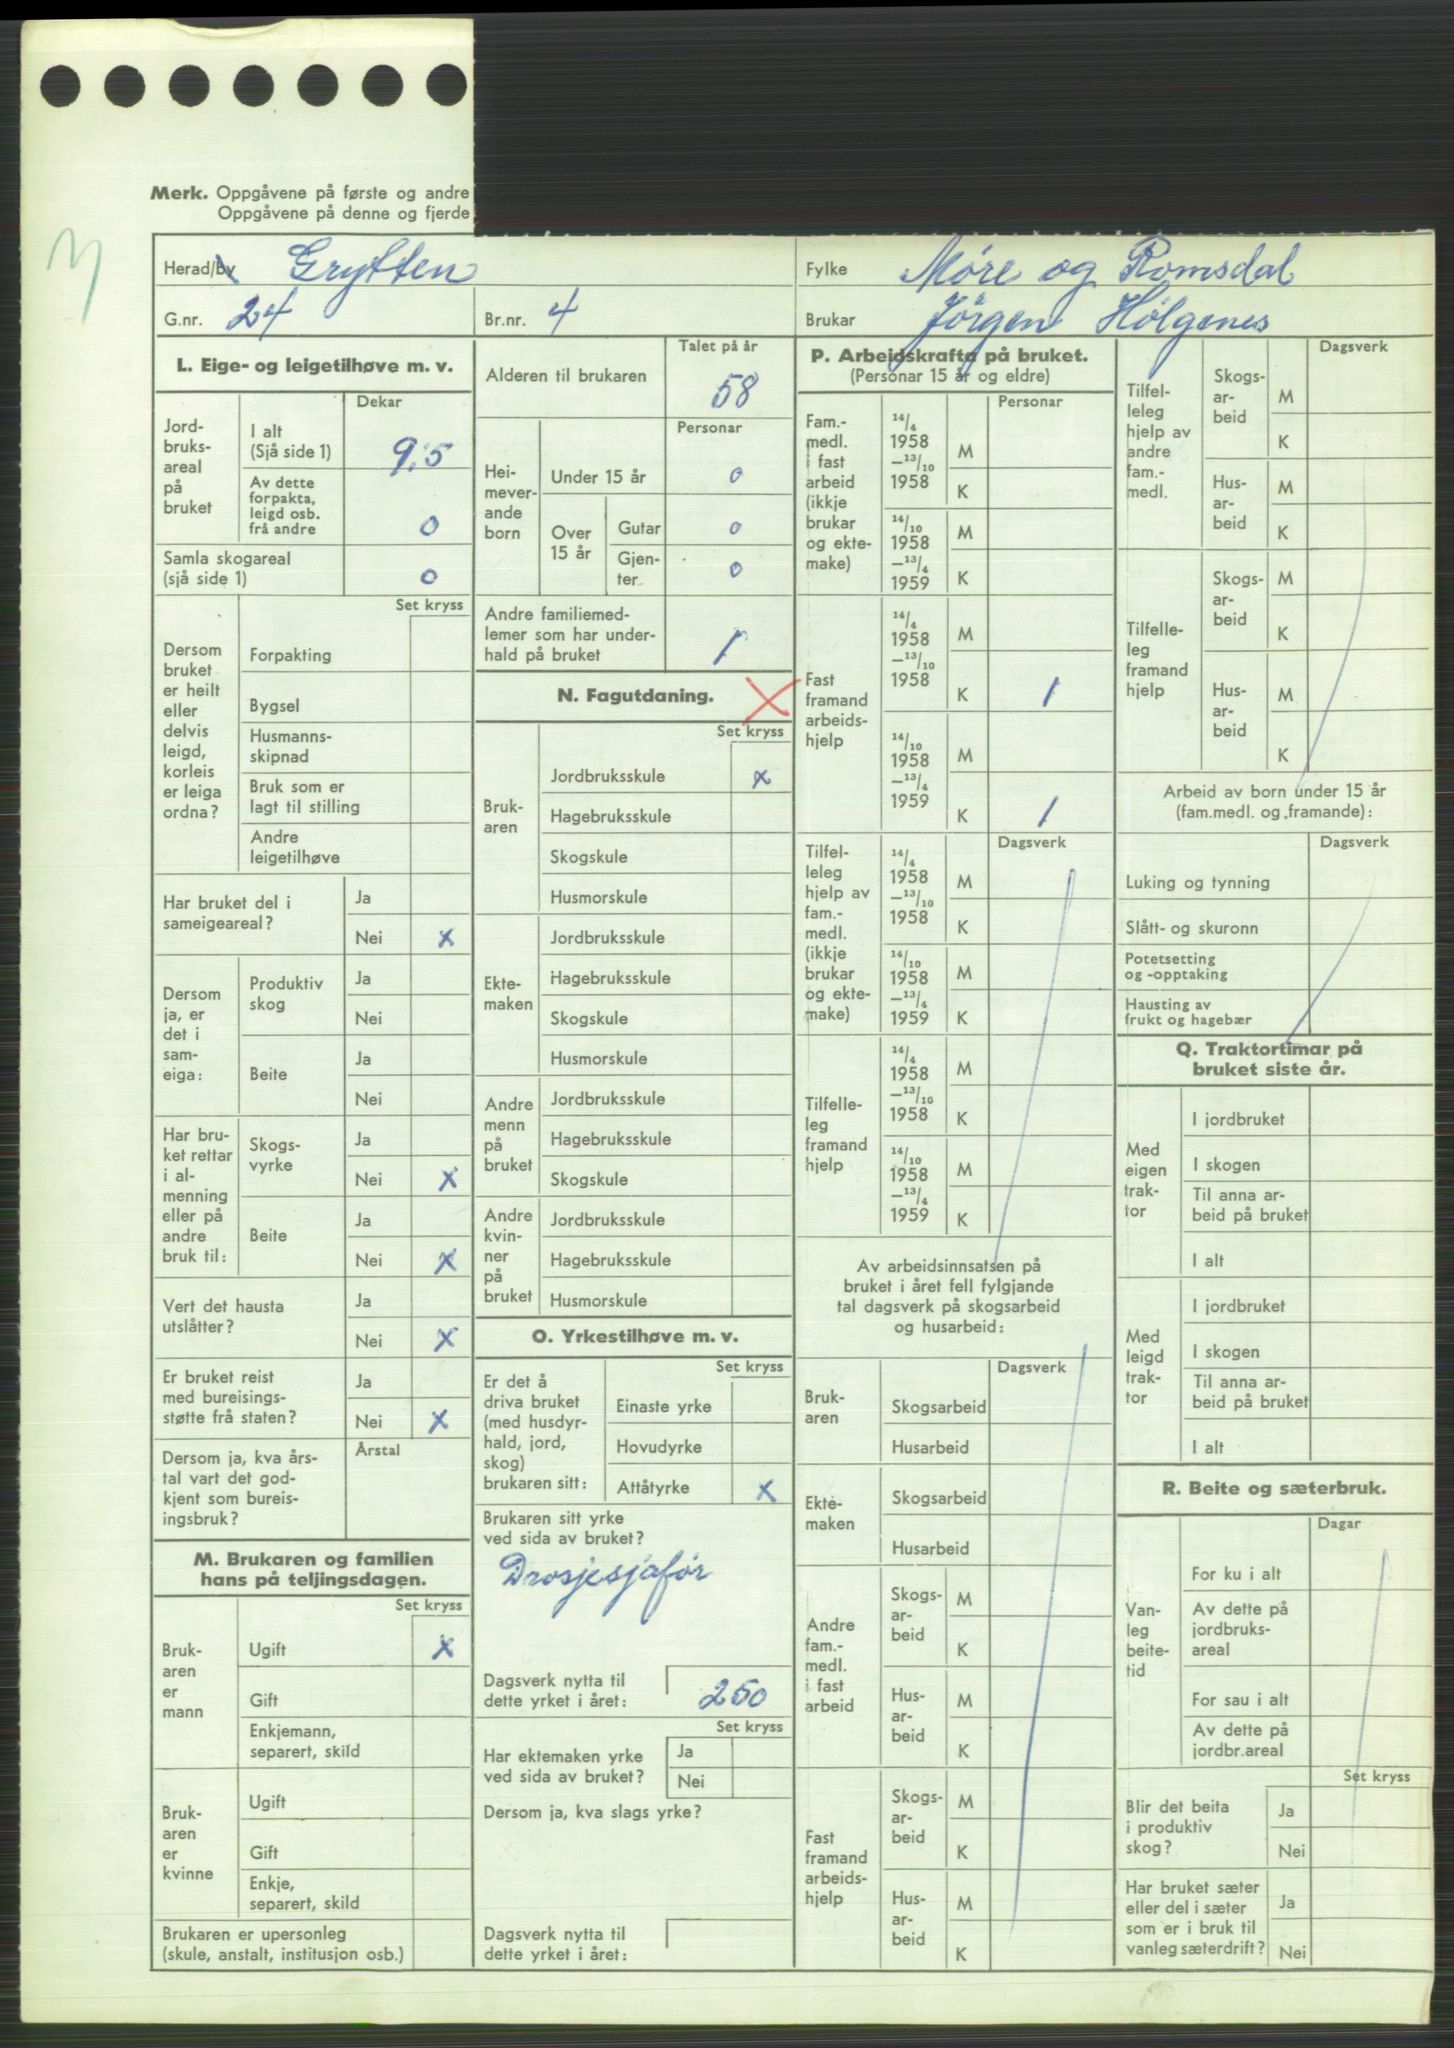 Merk. Oppgåvene på første og andre
Oppgåvene på denne og fjerde
Herad/By Grytten
Fylke Møre og Romsdal
G.nr. 24
Br.nr. 4
Brukar Jørgen Hølgenes
L. Eige- og leigetilhøve m. v.
Dekar
Jord-
bruks-
areal
på
bruket
I alt
(Sjå side 1)
9,5
Av dette
forpakta,
leigd osb.
frå andre
0
Samla skogareal
(sjå side 1)
0
Set kryss
Dersom
bruket
er heilt
eller
delvis
leigd,
korleis
er leiga
ordna?
Forpakting
Bygsel
Husmanns-
skipnad
Bruk som er
lagt til stilling
Andre
leigetilhøve
Har bruket del i
sameigeareal?
Ja
Nei x
Dersom
ja, er
det i
sam-
eiga:
Produktiv
skog
Ja
Nei
Beite
Ja
Nei
Har bru-
ket rettar
i al-
menning
eller på
andre
bruk til:
Skogs-
vyrke
Ja
Nei x
Beite
Ja
Nei x
Vert det hausta
utslåtter?
Ja
Nei x
Er bruket reist
med bureisings-
støtte frå staten?
Ja
Nei x
Dersom ja, kva års-
tal vart det god-
kjent som bureis-
ingsbruk?
Årstal
M. Brukaren og familien
hans på teljingsdagen.
Set kryss
Bruk-
aren
er
mann
Ugift x
Gift
Enkjemann,
separert, skild
Bruk-
aren
er
kvinne
Ugift
Gift
Enkje,
separert, skild
Brukaren er upersonleg
(skule, anstalt, institusjon osb.)
Talet på år
Alderen til brukaren
58
Personar
Hei-
mever-
ande
born
Under 15 år
0
Over
15 år
Gutar
0
Gjen-
ter.
0
Andre familiemed-
lemer som har under-
hald på bruket
1
N. Fagutdaning.
Set kryss
Bruk-
aren
Jordbruksskule x
Hagebruksskule
Skogskule
Husmorskule
Ekte-
maken
Jordbruksskule
Hagebruksskule
Skogskule
Husmorskule
Andre
menn
på
bruket
Jordbruksskule
Hagebruksskule
Skogskule
Andre
kvin-
ner
på
bruket
Jordbruksskule
Hagebruksskule
Husmorskule
O. Yrkestilhøve m. v.
Set kryss
Er det å
driva bruket
(med husdyr-
hald, jord,
skog)
brukaren sitt:
Einaste yrke
Hovudyrke
Attåtyrke x
Brukaren sitt yrke
ved sida av bruket?
Drosjesjafør
Dagsverk nytta til
dette yrket i året:
250
Set kryss
Har ektemaken yrke
ved sida av bruket?
Ja
Nei
Dersom ja, kva slags yrke?
Dagsverk nytta til
dette yrket i året:
P. Arbeidskrafta på bruket.
(Personar 15 år og eldre)
Personar
Fam.-
medl.
i fast
arbeid
(ikkje
brukar
og ekte-
make)
14/4
1958
—13/10
1958
M
K
14/10
1958
—13/4
1959
M
K
Fast
framand
arbeids-
hjelp
14/4
1958
—13/10
1958
M
K 1
14/10
1958
—13/4
1959
M
K 1
Dagsverk
Tilfel-
leleg
hjelp av
fam.-
medl.
(ikkje
brukar
og ekte-
make)
14/4
1958
—13/10
1958
M
K
14/10
1958
—13/4
1959
M
K
Tilfelle-
leg
framand
hjelp
14/4
1958
—13/10
1958
M
K
14/10
1958
—13/4
1959
M
K
Av arbeidsinnsatsen på
bruket i året fell fylgjande
tal dagsverk på skogsarbeid
og husarbeid:
Dagsverk
Bruk-
aren
Skogsarbeid
Husarbeid
Ekte-
maken
Skogsarbeid
Husarbeid
Andre
fam.-
medl.
i fast
arbeid
Skogs-
ar-
beid
M
K
Hus-
ar-
beid
M
K
Fast
framand
arbeids-
hjelp
Skogs-
ar-
beid
M
K
Hus-
ar-
beid
M
K
Dagsverk
Tilfel-
leleg
hjelp av
andre
fam.-
medl.
Skogs-
ar-
beid
M
K
Hus-
ar-
beid
M
K
Tilfelle-
leg
framand
hjelp
Skogs-
ar-
beid
M
K
Hus-
ar-
beid
M
K
Arbeid av born under 15 år
(fam.medl. og framande):
Dagsverk
Luking og tynning
Slått- og skuronn
Potetsetting
og -opptaking
Hausting av
frukt og hagebær
Q. Traktortimar på
bruket siste år.
Med
eigen
trak-
tor
I jordbruket
I skogen
Til anna ar-
beid på bruket
I alt
Med
leigd
trak-
tor
I jordbruket
I skogen
Til anna ar-
beid på bruket
I alt
R. Beite og sæterbruk.
Dagar
Van-
leg
beite-
tid
For ku i alt
Av dette på
jordbruks-
areal
For sau i alt
Av dette på
jordbr.areal
Set kryss
Blir det beita
i produktiv
skog?
Ja
Nei
Har bruket sæter
eller del i sæter
som er i bruk til
vanleg sæterdrift?
Ja
Nei